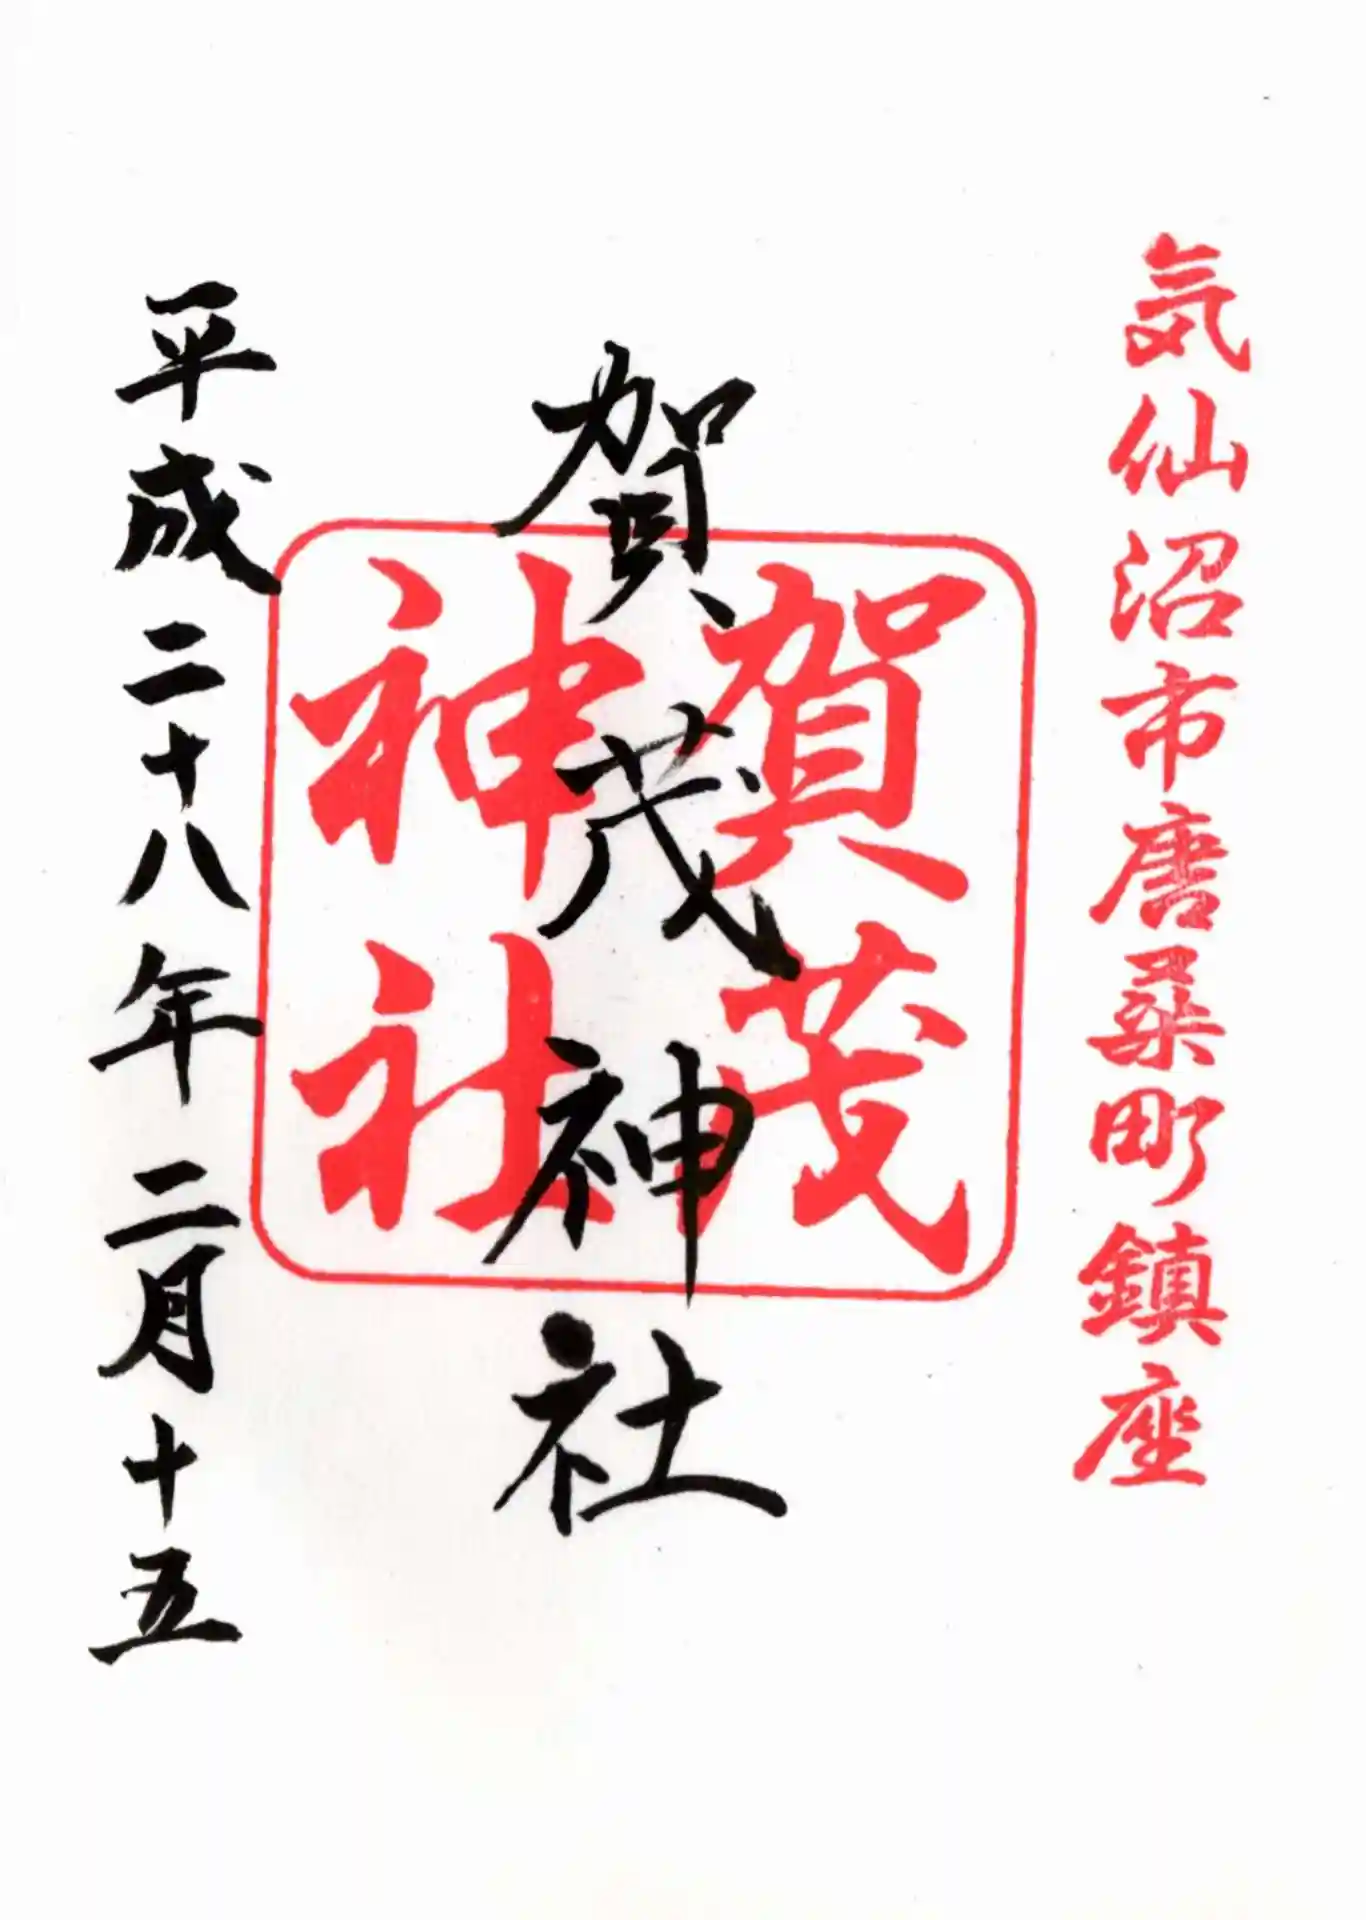 気仙沼市唐桑町鎮座
賀茂神社
賀茂
神社
平成二十八年二月十五